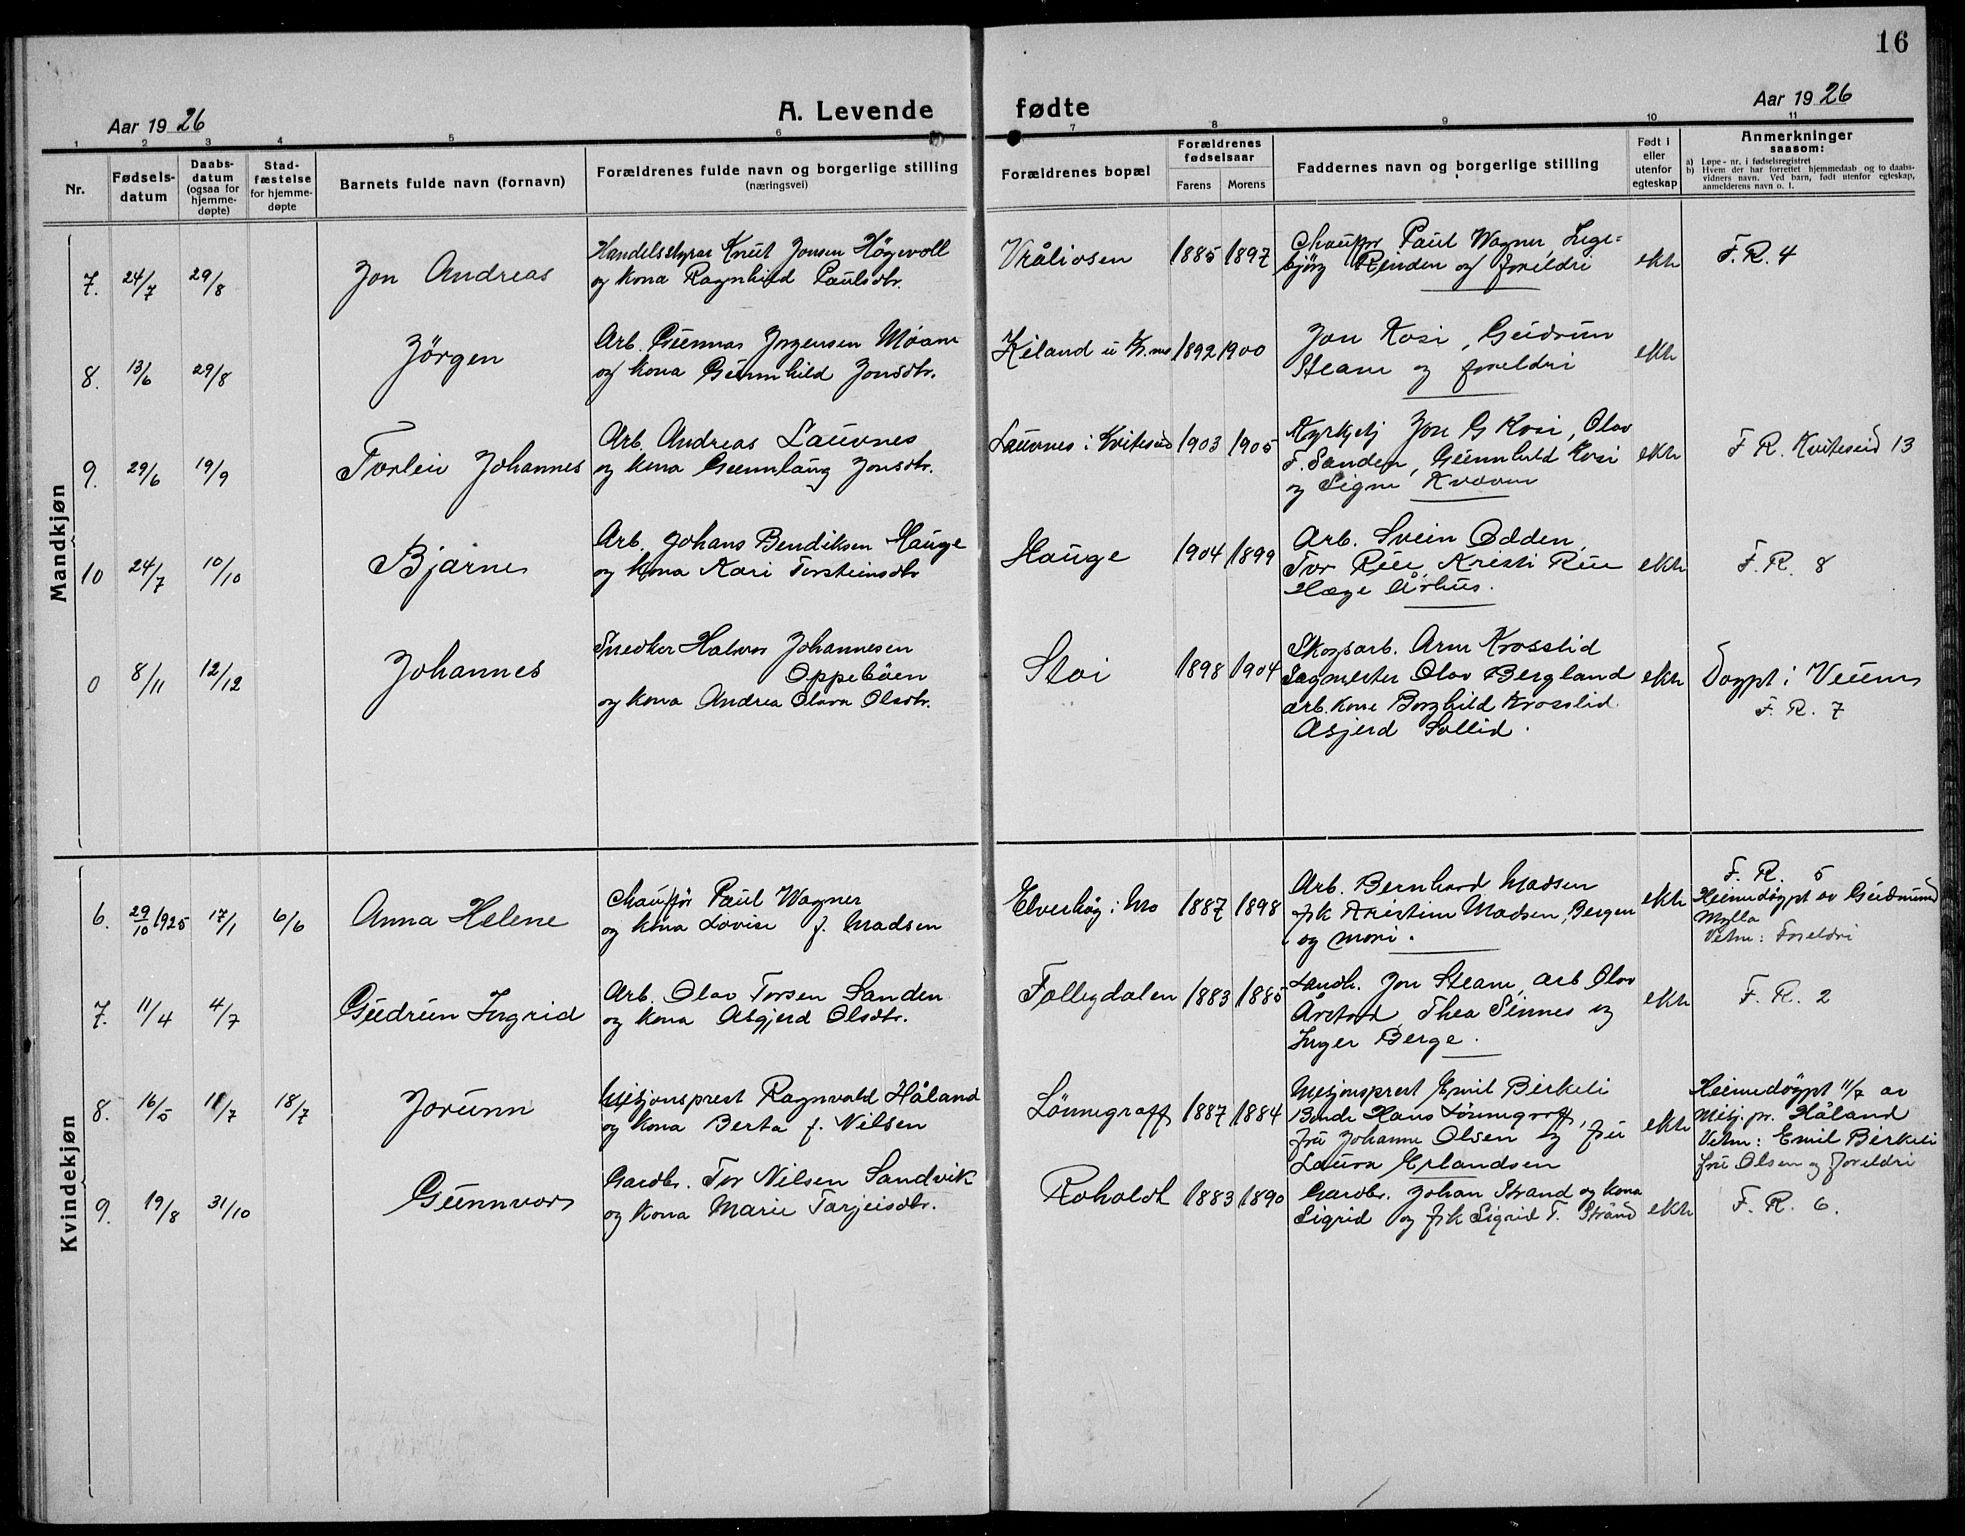 16
Aar 1926
A. Levende fødte
Aar 1926
1 2 3 4 5 6 7 8 9 10 11
Nr.
Fødsels-
datum
Daabs-
datum
(ogsaa for
hjemme-
døpte)
Stad-
fæstelse
for hjemme-
døpte
Barnets fulde navn (fornavn)
Forældrenes fulde navn og borgerlige stilling
(næringsvei)
Forældrenes bopæl
Forældrenes
fødselsaar
Farens Morens
Faddernes navn og borgerlige stilling
Født i
eller
utenfor
egteskap
Anmerkninger
saasom:
a) Løpe-nr. i fødselsregistret
b) Hvem der har forrettet hjemmedaab og to daabs-
vidners navn. Ved barn, født utenfor egteskap,
anmelderens navn o. l.
Mandkjøn
7. 24/7 29/8 Jon Andreas
Handelsstyrar Knut Jonsen Høgevoll
og kona Ragnhild Paulsdtr.
Vråliosen 1885 1897
Chauffør Paul Wagner, Inge-
björg Rinden og foreldri
ekte F. R. 4
8. 13/6 29/8 Jörgen
Arb. Gunnar Jorgensen Moane
og kona Gunnhild Jonsdtr.
Kiland 1892 1900
Jon Kosi, Gudrun
Steane og foreldri
ekte
9. 29/6 19/9 Torleiv Johannes
Arb. Andreas Lauvnes
og kona Gunnlaug Jonsdtr.
Lauvnes i Kviteseid 1903 1905
Kyrkjetj Jon G Kosi, Olav
T. Sanden, Gunnhild Kosi
og Signe Kvaven
ekte F. R. Kviteseid 13
10 24/7 10/10 Bjarne
Arb. Johans Bendiksen Hauge
og kona Kari Torsteinsdtr
Hauge 1904 1899
Arb. Svein Odden
Tor Rue, Kristi Rue
Hæge Århus.
ekte F. R. 8
0 8/11 12/12 Johannes
Snedker Halvor Johannesen
Oppebøen
og kona Andrea Olava Olsdtr.
Stoi 1898 1904
Skogsarb. Arne Krosslid
Sagmester Olav Bergland
arb. kone Borghild Krosslid
Asjerd Sollid.
ekte Døypt i Veum
F. R. 7
Kvindekjøn
6. 29/10 1925 17/1 6/6 Anna Helene
Chauffør Paul Wagner
og kona Lovise f. Madsen
Elverhøg i Mo 1887 1898
Arb. Bernhard Madsen
frk Kristine Madsen, Bergen
og mori.
ekte F. R. 5
Heimedøypt av Gudmund
Mylla
Vitne: Foreldri
7. 11/4 4/7 Gudrun Ingrid
Arb. Olav Torsen Sanden
og kona Asgjerd Olsdtr.
Follegdalen 1883 1885
Landh. Jon Steane, arb Olav
Årstad Thea Sinnes og
Inger Berge.
ekte F. R. 2
8. 16/5 11/7 18/7 Jorunn
Misjonsprest Ragnvald Håland
og kona Berta f. Nilsen
Lönnegraff 1887 1884
Misjonsprest Emil Birkeli
Bonde Hans Lönnegraff,
fru Johanne Olsen og fru
Laura Erlandsen
ekte Heimedøypt 11/7 av
Misj. pr. Håland
Vitne: Emil Birkeli
fru Olsen og foreldri
9. 19/8 31/10 Gunnvor
Gardbr. Tor Nilsen Sandvik
og kona Marie Tarjeisdtr.
Roholdt 1883 1890
Gardbr. Johan Strand og kona
Sigrid og frk Sigrid T. Strand
ekte F. R. 6.